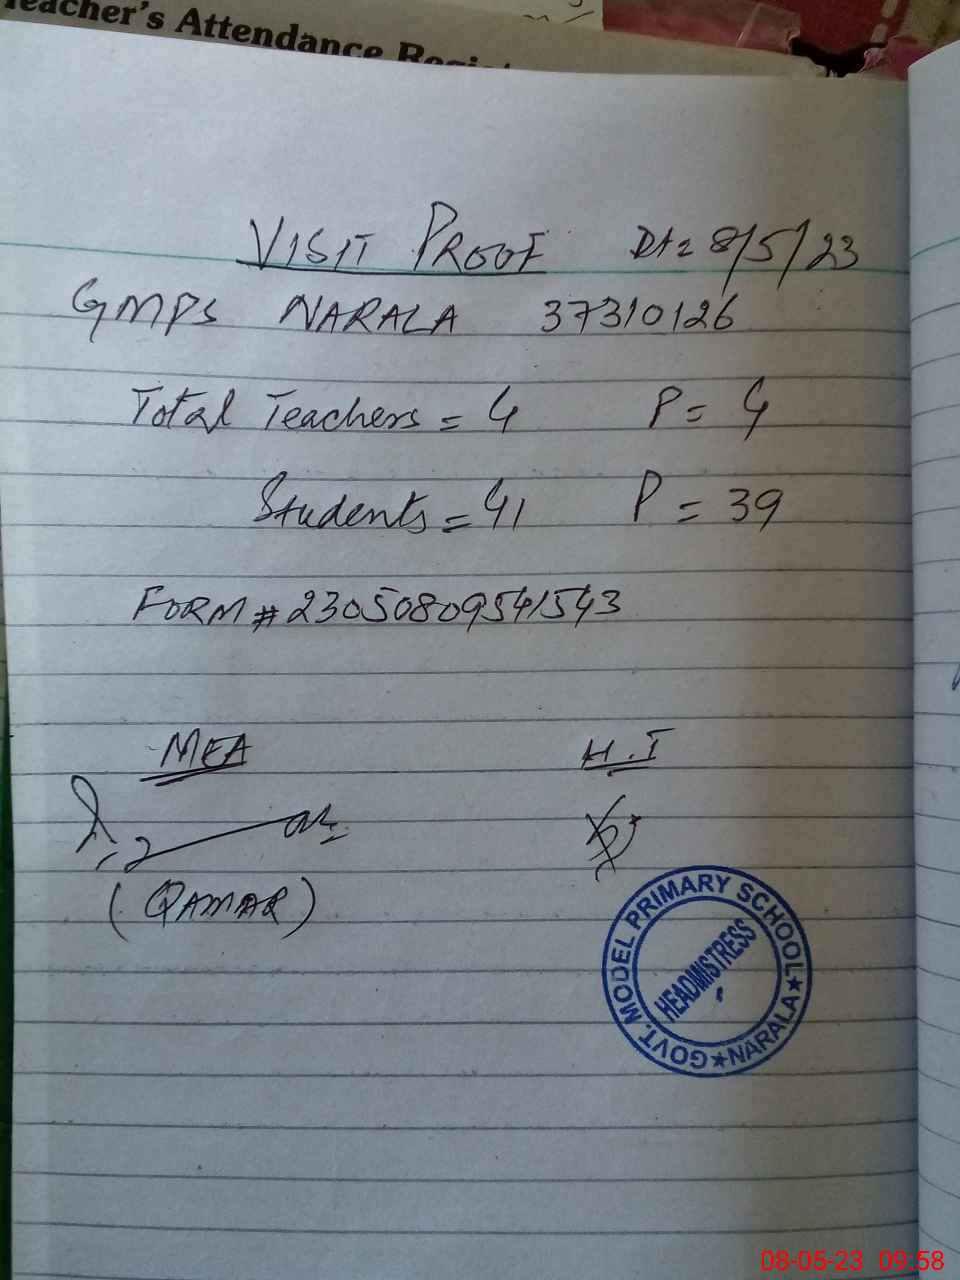 Teacher's Attendance
VISIT PROOF Dt= 8/5/23
GMPS NARALA 37310126
Total Teachers = 4 P = 4
Students = 41 P = 39
FORM # 23050809541543
MEA H.T
(QAMAR)
GOVT. MODEL PRIMARY SCHOOL ★ NARALA ★
HEADMISTRESS
08-05-23 09:58